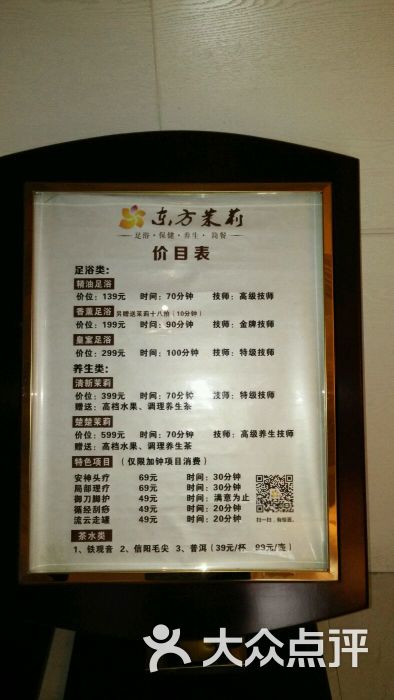 东方茉莉
足浴·保健·养生·简餐
价目表
足浴类：
精油足浴
价位：139元 时间：70分钟 技师：高级技师
香薰足浴 另赠送茉莉十八拍（10分钟）
价位：199元 时间：90分钟 技师：金牌技师
皇室足浴
价位：299元 时间：100分钟 技师：特级技师
养生类：
清新茉莉
价位：399元 时间：70分钟 技师：特级技师
赠送：高档水果、调理养生茶
楚楚茉莉
价位：599元 时间：70分钟 技师：高级养生技师
赠送：高档水果、调理养生茶
特色项目 （仅限加钟项目消费）
安神头疗 69元 时间：30分钟
局部理疗 69元 时间：30分钟
御刀脚护 49元 时间：满意为止
循经刮痧 49元 时间：20分钟
流云走罐 49元 时间：20分钟
扫一扫，有惊喜。
茶水类
1、铁观音 2、信阳毛尖 3、普洱（39元/杯 99元/壶）
大众点评